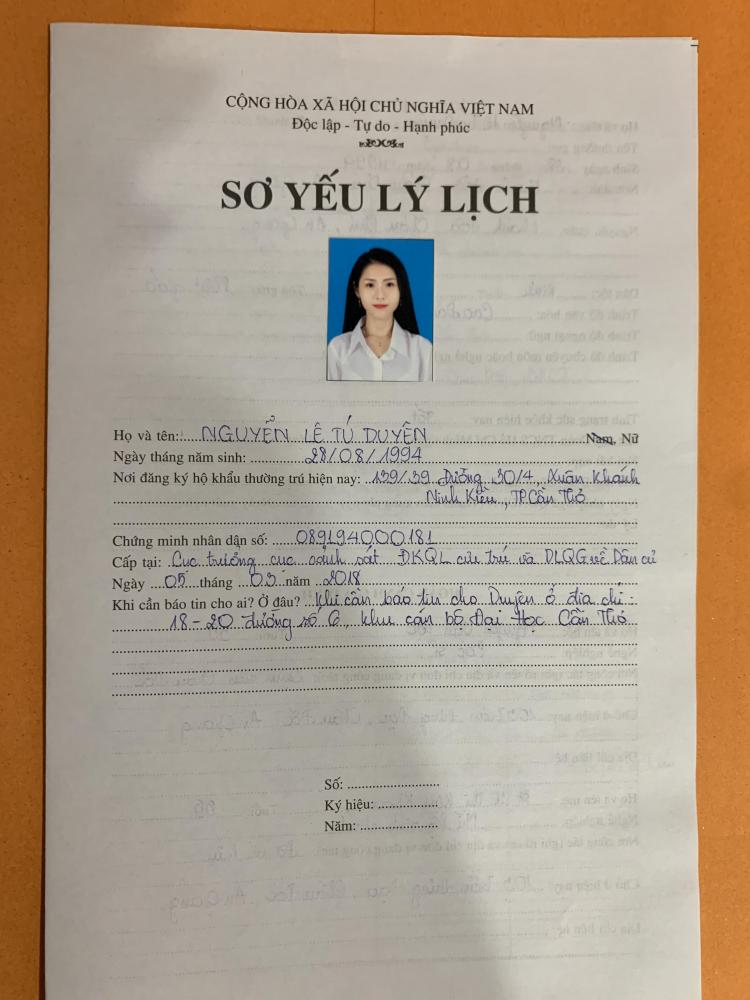 CỘNG HÒA XÃ HỘI CHỦ NGHĨA VIỆT NAM
Độc lập - Tự do - Hạnh phúc
SƠ YẾU LÝ LỊCH
Họ và tên: NGUYỄN LÊ TÚ DUYÊN Nam, Nữ
Ngày tháng năm sinh: 28/08/1994
Nơi đăng ký hộ khẩu thường trú hiện nay: 139/39 Đường 30/4, Xuân Khánh
Ninh Kiều, TP. Cần Thơ
Chứng minh nhân dận số: 089194000181
Cấp tại: Cục trưởng cục cảnh sát ĐKQL cư trú và DLQG về Dân cư
Ngày 05 tháng 03 năm 2018
Khi cần báo tin cho ai? Ở đâu? Khi cần báo tin cho Duyên ở địa chỉ:
18-20 đường số 6, khu cán bộ Đại Học Cần Thơ
Số:
Ký hiệu:
Năm: